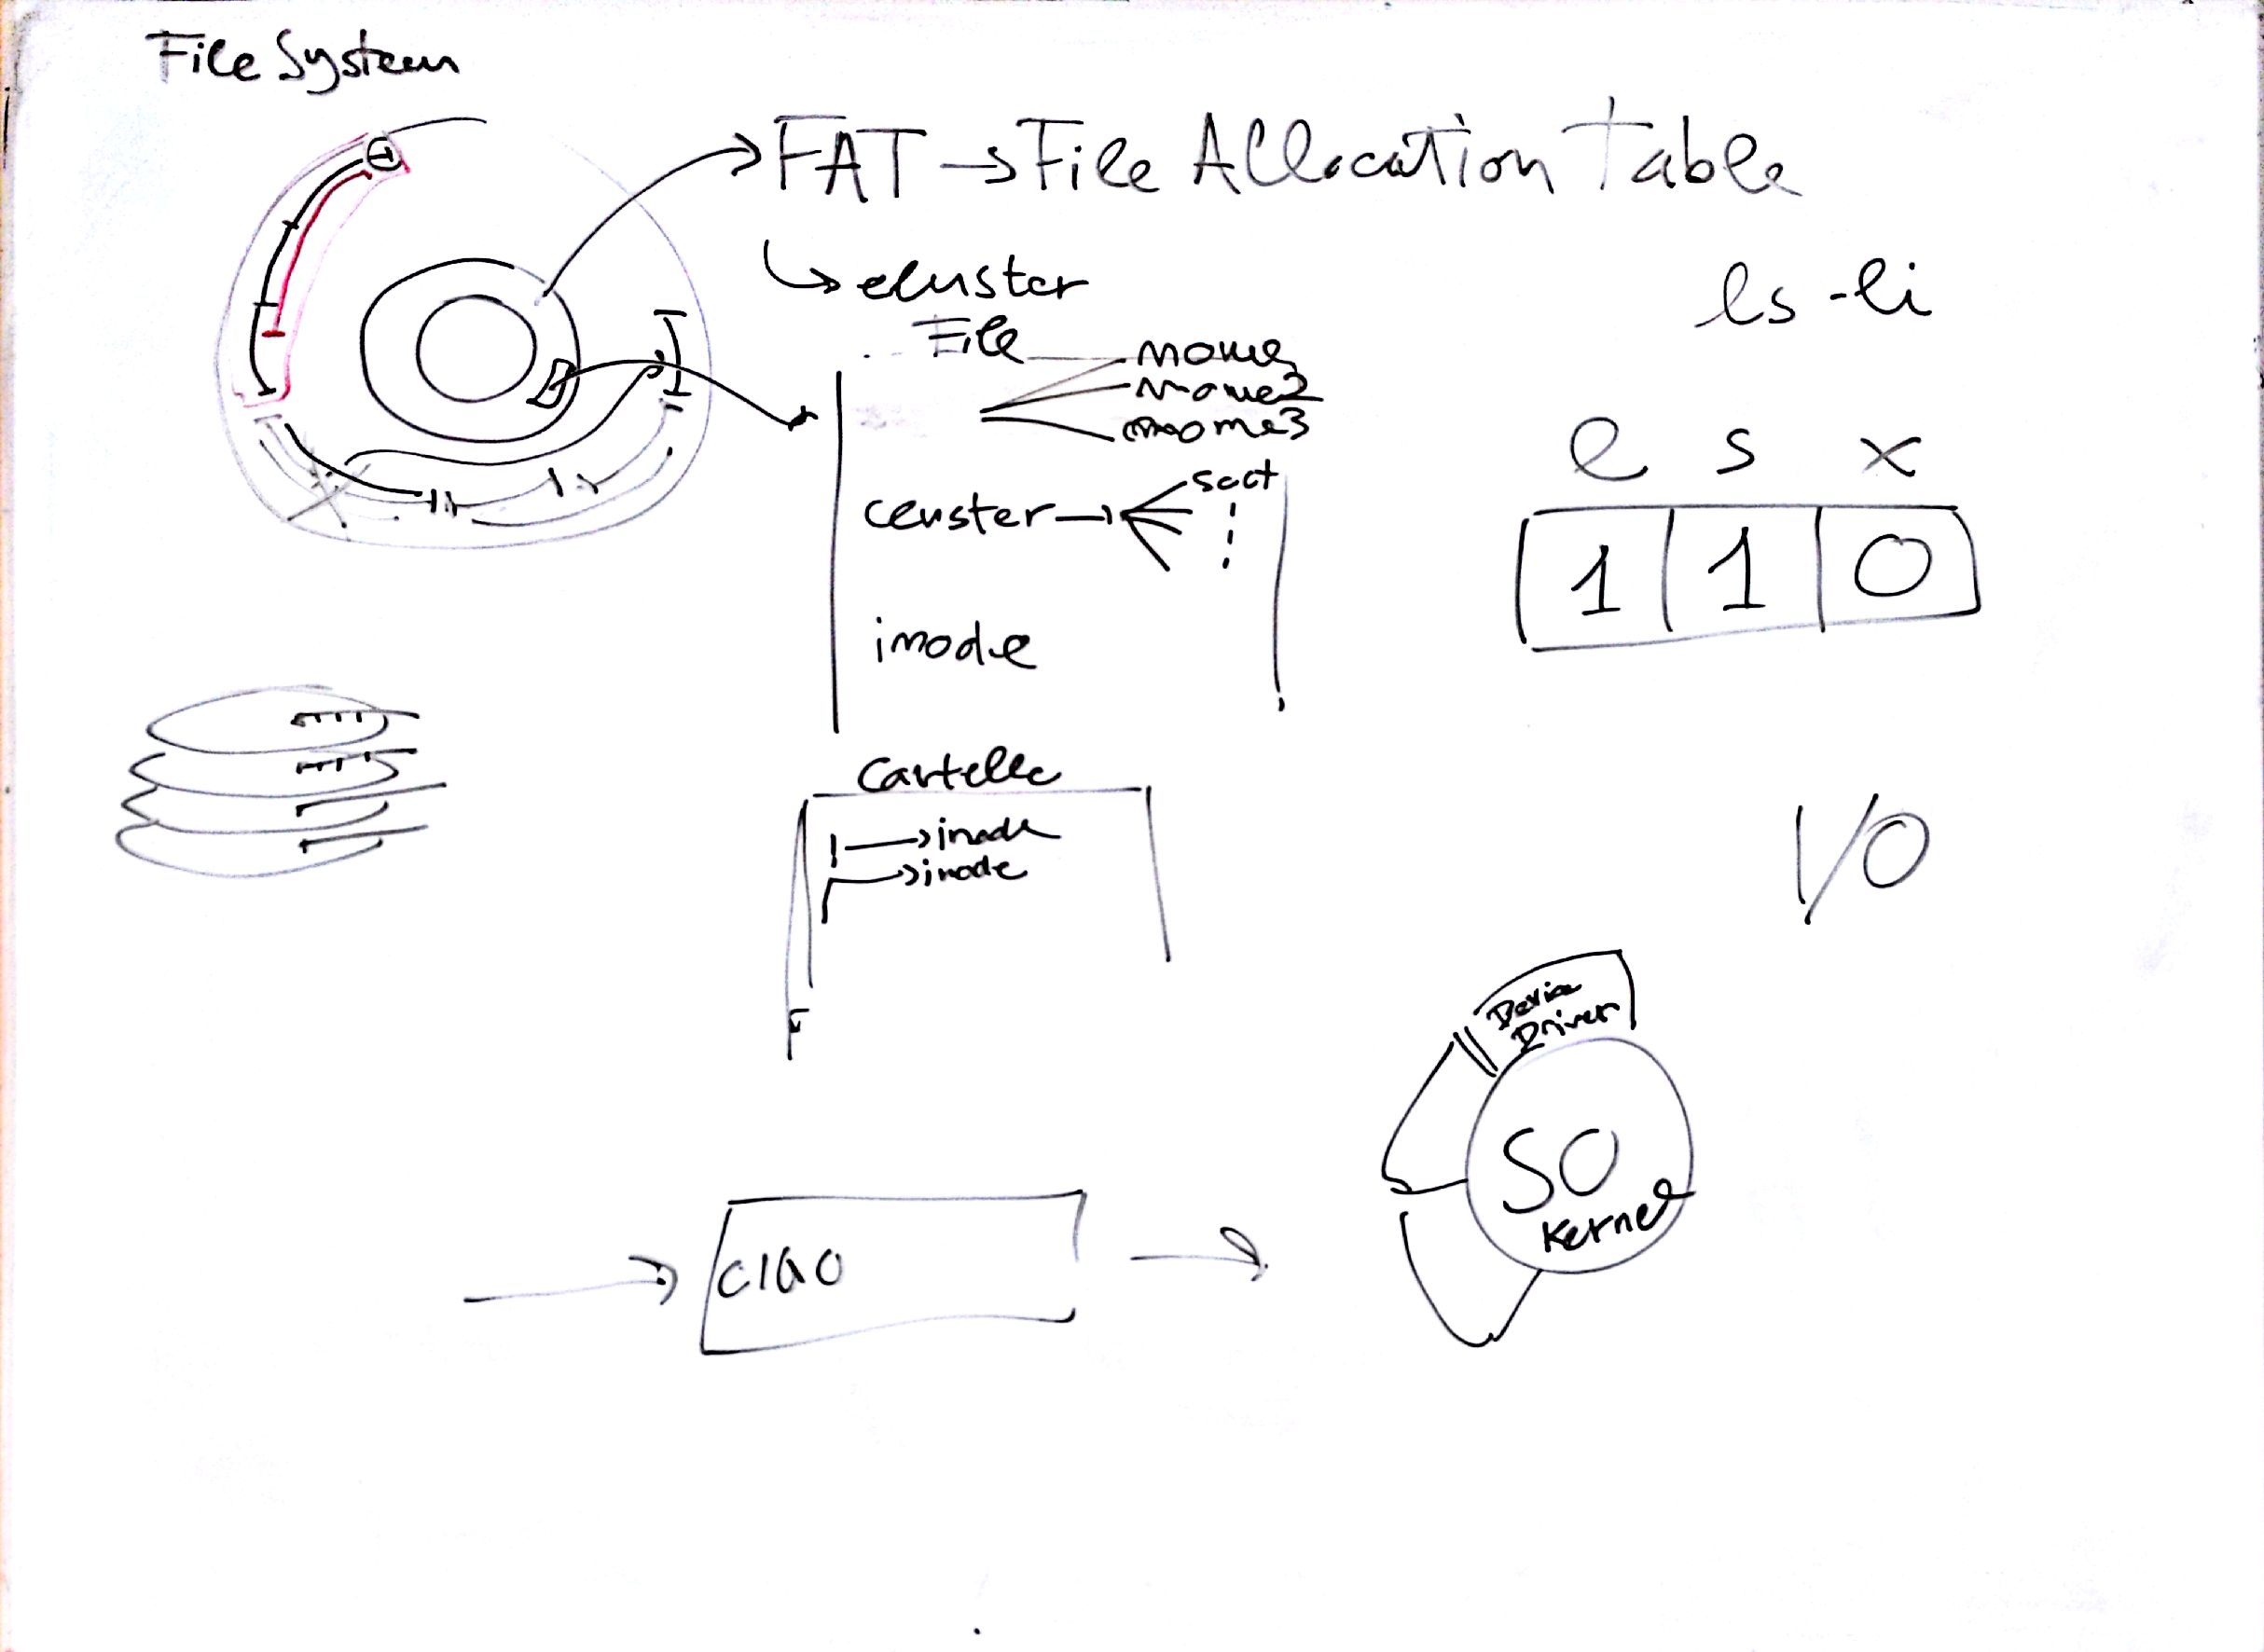 File System
FAT → File Allocation Table
↳ cluster
ls -li
File
nome
nome2
nome3
l s x
1 1 0
cluster → sect
inode
Cartelle
→ inode
→ inode
I/O
Device
Driver
SO
Kernel
CIAO